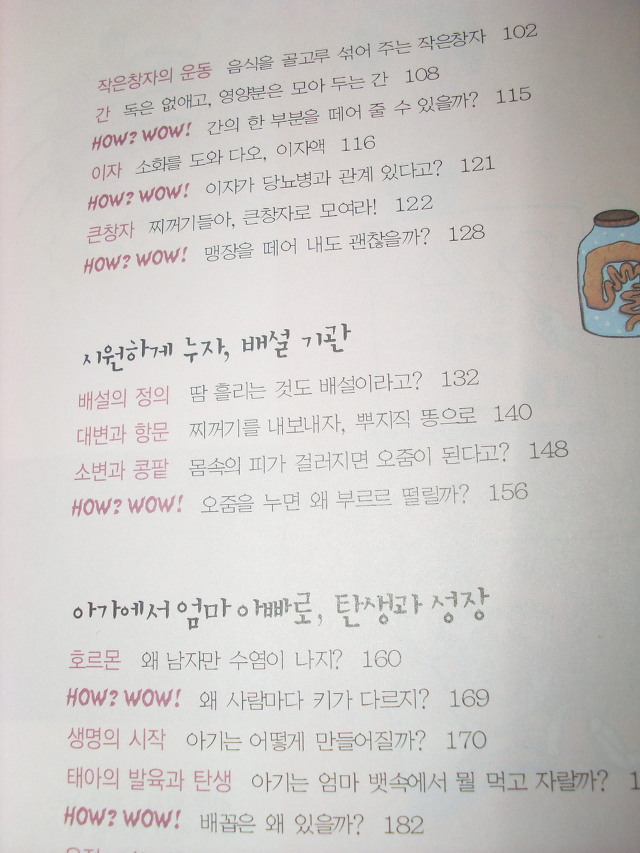 작은창자의 운동 음식을 골고루 섞어 주는 작은창자 102
간 독은 없애고, 영양분은 모아 두는 간 108
HOW? WOW! 간의 한 부분을 떼어 줄 수 있을까? 115
이자 소화를 도와 다오, 이자액 116
HOW? WOW! 이자가 당뇨병과 관계 있다고? 121
큰창자 찌꺼기들아, 큰창자로 모여라! 122
HOW? WOW! 맹장을 떼어 내도 괜찮을까? 128
시원하게 누자, 배설 기관
배설의 정의 땀 흘리는 것도 배설이라고? 132
대변과 항문 찌꺼기를 내보내자, 뿌지직 똥으로 140
소변과 콩팥 몸속의 피가 걸러지면 오줌이 된다고? 148
HOW? WOW! 오줌을 누면 왜 부르르 떨릴까? 156
아가에서 엄마 아빠로, 탄생과 성장
호르몬 왜 남자만 수염이 나지? 160
HOW? WOW! 왜 사람마다 키가 다르지? 169
생명의 시작 아기는 어떻게 만들어질까? 170
태아의 발육과 탄생 아기는 엄마 뱃속에서 뭘 먹고 자랄까?
HOW? WOW! 배꼽은 왜 있을까? 182